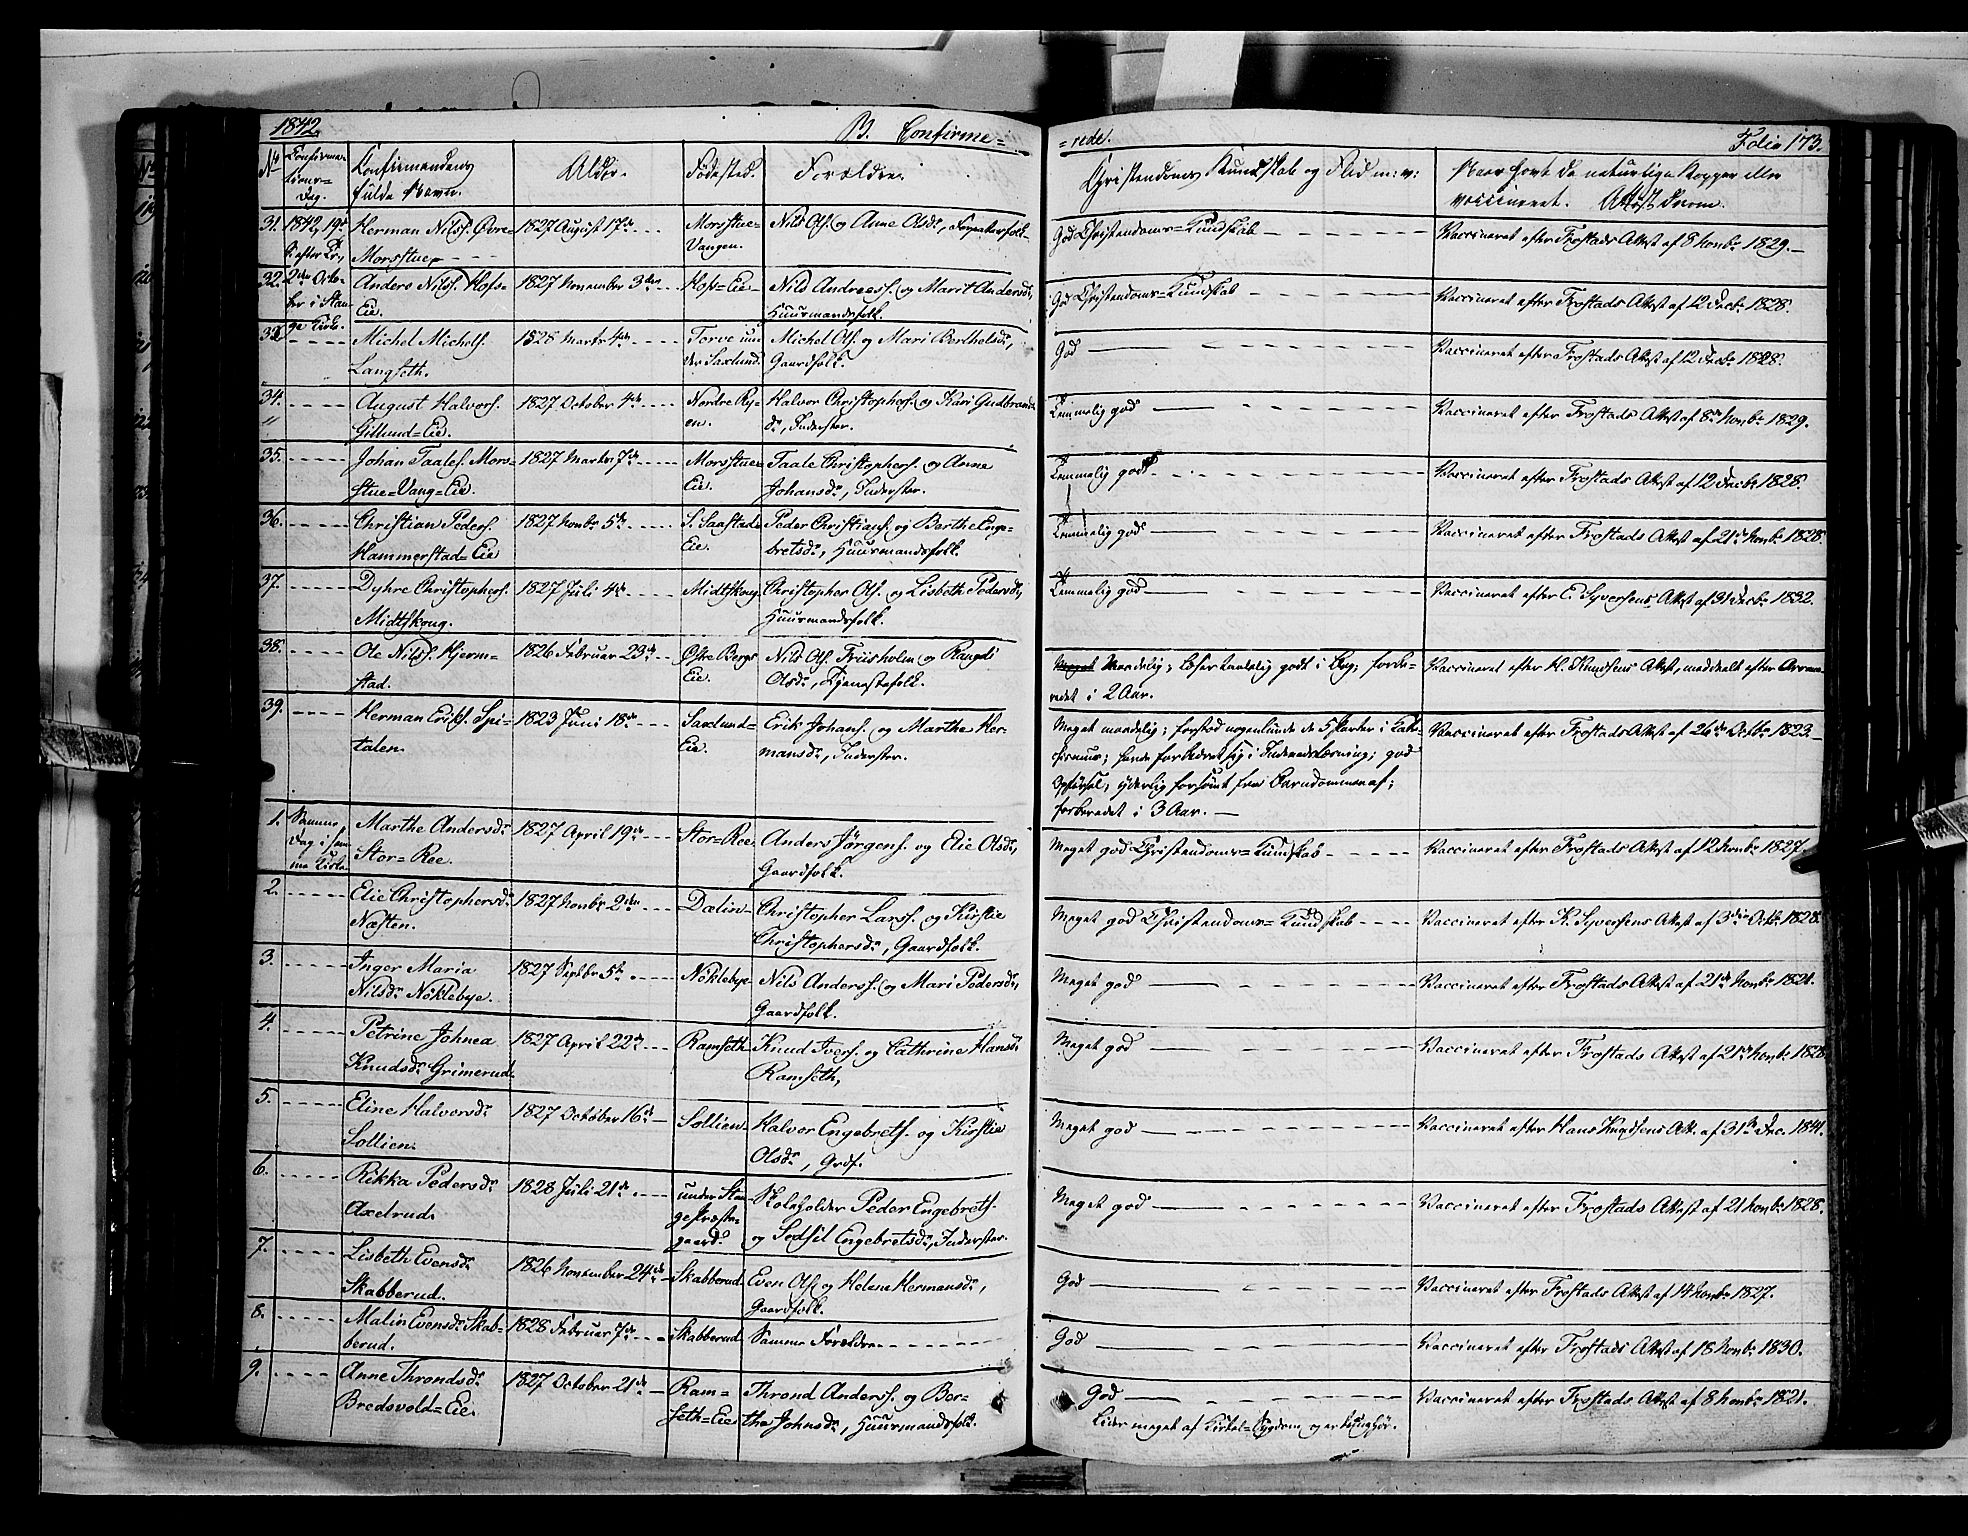 1842.
B. Confirme=
=rede.
Folio 173.
No
Confirma-
tions-
Dag.
Confirmandens
fulde Navn.
Alder.
Fødested.
Forældre.
Christendoms Kundskab og Flid m: v:
Naar havt de naturlige Kopper eller
vaccineret. Attest derom.
31. 1842, 19de
S. efter Tr,
Herman Nilss. Øvre-
Morsstue,
1827 August 17de
Morsstue-
Vangen.
Nils Ols. og Anne Olsdr,
God Christendoms-Kundskab
Vaccineret efter Frostads Attest af 8 Novbr 1829.
32. 2den Octo-
ber i Stan-
ge Kirke.
Anders Nilss. Hoss-
Eie.
1827 November 3die
Hoss=Eie
Nils Andreess. og Marit Andersdr,
Huusmandsfolk.
God Christendoms=Kundskab
Vaccineret efter Frostads Attest af 12 Decbr 1828.
33.
Michel Michels.
Langseth.
1828 Marts 4de
Torve un-
der Saxlund.
Michel Ols. og Mari Berthelsdr,
Gaardfolk.
God
Vaccineret efter Frostads Attest af 12 Decbr 1828.
34.
August Halvors.
Gillund=Eie.
1827 October 4de
Nordre Ry-
en.
Halvor Christophers. og Kari Gudbrands-
dr, Inderster.
Temmelig god
Vaccineret efter Frostads Attest af 8de Novbr 1829.
35.
Johan Taales. Mors-
stue=Vang=Eie.
1827 Marts 7de
Morsstue=
Eie.
Taale Christophers. og Anne
Johansdr, Inderster.
Temmelig god
Vaccineret efter Frostads Attest af 12 Decbr 1828.
36.
Christian Peders.
Hammerstad=Eie
1827 Novbr 5te
S. Saastads
Eie.
Peder Christians. og Berthe Enge-
bretsdr, Huusmandsfolk.
Temmelig god
Vaccineret efter Frostads Attest af 21de Novbr 1828.
37.
Dyhre Christophers.
Midtskoug.
1827 Juli 4de
Midtskoug
Christopher Ols. og Lisbeth Pedersdr,
Huusmandsfolk.
Temmelig god
Vaccineret efter E. Syversens Attest af 31 Decbr 1832.
38.
Ole Nilss. Hjerm-
stad.
1826 Februar 23de
Østre Bergs
Eie.
Nils Ols. Friisholm og Rangdi
Olsdr, Tjenestefolk.
Maadelig; læser taalelig godt i Bog; forbe-
redet i 2 Aar.
Vaccineret efter H. Knudsens Attest, meddeelt efter
39.
Herman Eriks. Spi-
talen.
1823 Juni 18de
Saxlund=
Eie.
Erik Johans. og Marthe Her-
mansdr, Inderster.
Meget maadelig; forstod nogenlunde de 5 Parter i Cate-
chismus; havde forbedret sig i Indenadslæsning; god
Opførsel, yderlig forsømt fra Barndommen af;
forberedet i 3 Aar.
Vaccineret efter Frostads Attest af 26de Octbr 1823
1. Samme
Dag i sam-
me Kirke
Marthe Andersdr
Stor=Ree.
1827 April 19de
Stor=Ree
Anders Jørgens. og Elie Olsdr,
Gaardfolk.
Meget god Christendoms=Kundskab
Vaccineret efter Frostads Attest af 12 Novbr 1827.
2.
Elie Christophersdr
Næsten.
1827 Novbr 2den
Dælin
Christopher Larss. og Kirstie
Christophersdr, Gaardfolk.
Meget god Christendoms=Kundskab
Vaccineret efter K. Syversens Attest af 3die Octbr 1828.
3.
Inger Maria
Nilsdr Nøklebye.
1827 Septbr 5te
Nøklebye
Nils Anderss. og Mari Pedersdr,
Gaardfolk.
Meget god
Vaccineret efter Frostads Attest af 21de Novbr 1828.
4.
Petrine Johnea
Knudsdr Grimerud.
1827 April 22de
Ramseth
Knud Ivers. og Cathrine Hansdr
Ramseth,
Meget god
Vaccineret efter Frostads Attest af 21de Novbr 1828.
5.
Eline Halvorsdr
Sollien.
1827 October 16de
Sollien
Halvor Engebrets. og Kirstie
Olsdr, Grdf.
Meget god
Vaccineret efter Hans Knudsens Att. af 31te Dec. 1841.
6.
Rikka Pedersdr
Axelrud.
1828 Juli 21de
under Stan-
ge Præste-
gaard.
Skoleholder Peder Engebrets.
og Sedsil Engebretsdr, Inderster.
Meget god
Vaccineret efter Frostads Attest af 21 Novbr 1828.
7.
Lisbeth Evensdr
Skabberud.
1826 November 24de
Skabberud.
Even Ols. og Helene Hermansdr,
Gaardfolk.
God
Vaccineret efter Frostads Attest af 14 Novbr 1827.
8.
Malin Evensdr Skab-
berud.
1828 Februar 7de
Skabberud
Samme Forældre
God
Vaccineret efter Frostads Attest af 18 Novbr 1830.
9.
Anne Throndsdr
Bredsvold=Eie.
1827 October 21de
Ram=
seth=Eie
Thrond Anderss. og Ber-
the Johnsdr, Huusmandsfolk.
God
Lider meget af Kirtel=Sygdom og er tunghør.
Vaccineret efter Frostads Attest af 8 Novbr 1821.